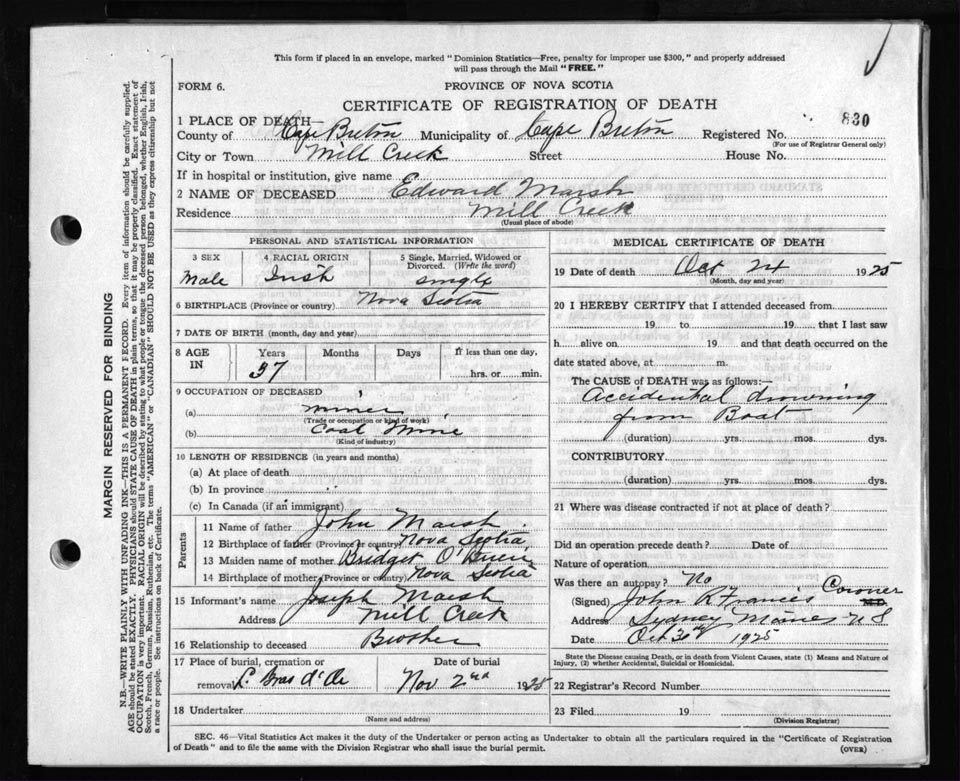 This form if placed in an envelope, marked "Dominion Statistics—Free, penalty for improper use $300," and properly addressed
will pass through the Mail "FREE."
FORM 6.
PROVINCE OF NOVA SCOTIA
CERTIFICATE OF REGISTRATION OF DEATH
830
1 PLACE OF DEATH—
County of Cape Breton Municipality of Cape Breton Registered No.
(For use of Registrar General only)
City or Town Mill Creek Street House No.
If in hospital or institution, give name
2 NAME OF DECEASED Edward Marsh
Residence Mill Creek
(Usual place of abode)
PERSONAL AND STATISTICAL INFORMATION
3 SEX 4 RACIAL ORIGIN 5 Single, Married, Widowed or
Divorced. (Write the word)
Male Irish single
6 BIRTHPLACE (Province or country) Nova Scotia
7 DATE OF BIRTH (month, day and year)
8 AGE IN Years Months Days If less than one day,
37 hrs. or min.
9 OCCUPATION OF DECEASED
(a) miner
(Trade or occupation or kind of work)
(b) Coal Mine
(Kind of industry)
10 LENGTH OF RESIDENCE (in years and months)
(a) At place of death
(b) In province
(c) In Canada (if an immigrant)
Parents
11 Name of father John Marsh
12 Birthplace of father (Province or country) Nova Scotia
13 Maiden name of mother Bridget O'Brien
14 Birthplace of mother (Province or country) Nova Scotia
15 Informant's name Joseph Marsh
Address Mill Creek
16 Relationship to deceased Brother
17 Place of burial, cremation or Date of burial
removal L. Bras d'Or Nov 2nd 1925
18 Undertaker
(Name and address)
MEDICAL CERTIFICATE OF DEATH
19 Date of death Oct 24 1925
(Month, day and year)
20 I HEREBY CERTIFY that I attended deceased from
19 to 19 that I last saw
h alive on 19 and that death occurred on the
date stated above, at m.
The CAUSE of DEATH was as follows:—
Accidental drowning
from Boat
(duration) yrs. mos. dys.
CONTRIBUTORY
(duration) yrs. mos. dys.
21 Where was disease contracted if not at place of death?
Did an operation precede death? Date of
Nature of operation
Was there an autopsy? No
(Signed) John R Francis Coroner
M.D.
Address Sydney Mines N S
Date Oct 30th 1925
State the Disease causing Death, or in death from Violent Causes, state (1) Means and Nature of
Injury, (2) whether Accidental, Suicidal or Homicidal.
22 Registrar's Record Number
23 Filed 19
(Division Registrar)
SEC. 46—Vital Statistics Act makes it the duty of the Undertaker or person acting as Undertaker to obtain all the particulars required in the "Certificate of Registration
of Death" and to file the same with the Division Registrar who shall issue the burial permit.
(OVER)
MARGIN RESERVED FOR BINDING
N.B.—WRITE PLAINLY WITH UNFADING INK—THIS IS A PERMANENT RECORD. Every item of information should be carefully supplied.
AGE should be stated EXACTLY. PHYSICIANS should STATE CAUSE OF DEATH in plain terms, so that it may be properly classified. Exact statement of
OCCUPATION is very important. RACIAL ORIGIN will be described by stating to what people or tongue the deceased person belonged, whether English, Irish,
Scotch, French, German, Russian, Ruthenian, etc. The terms "AMERICAN" or "CANADIAN" SHOULD NOT BE USED as they express citizenship but not
a race or people. See instructions on back of Certificate.